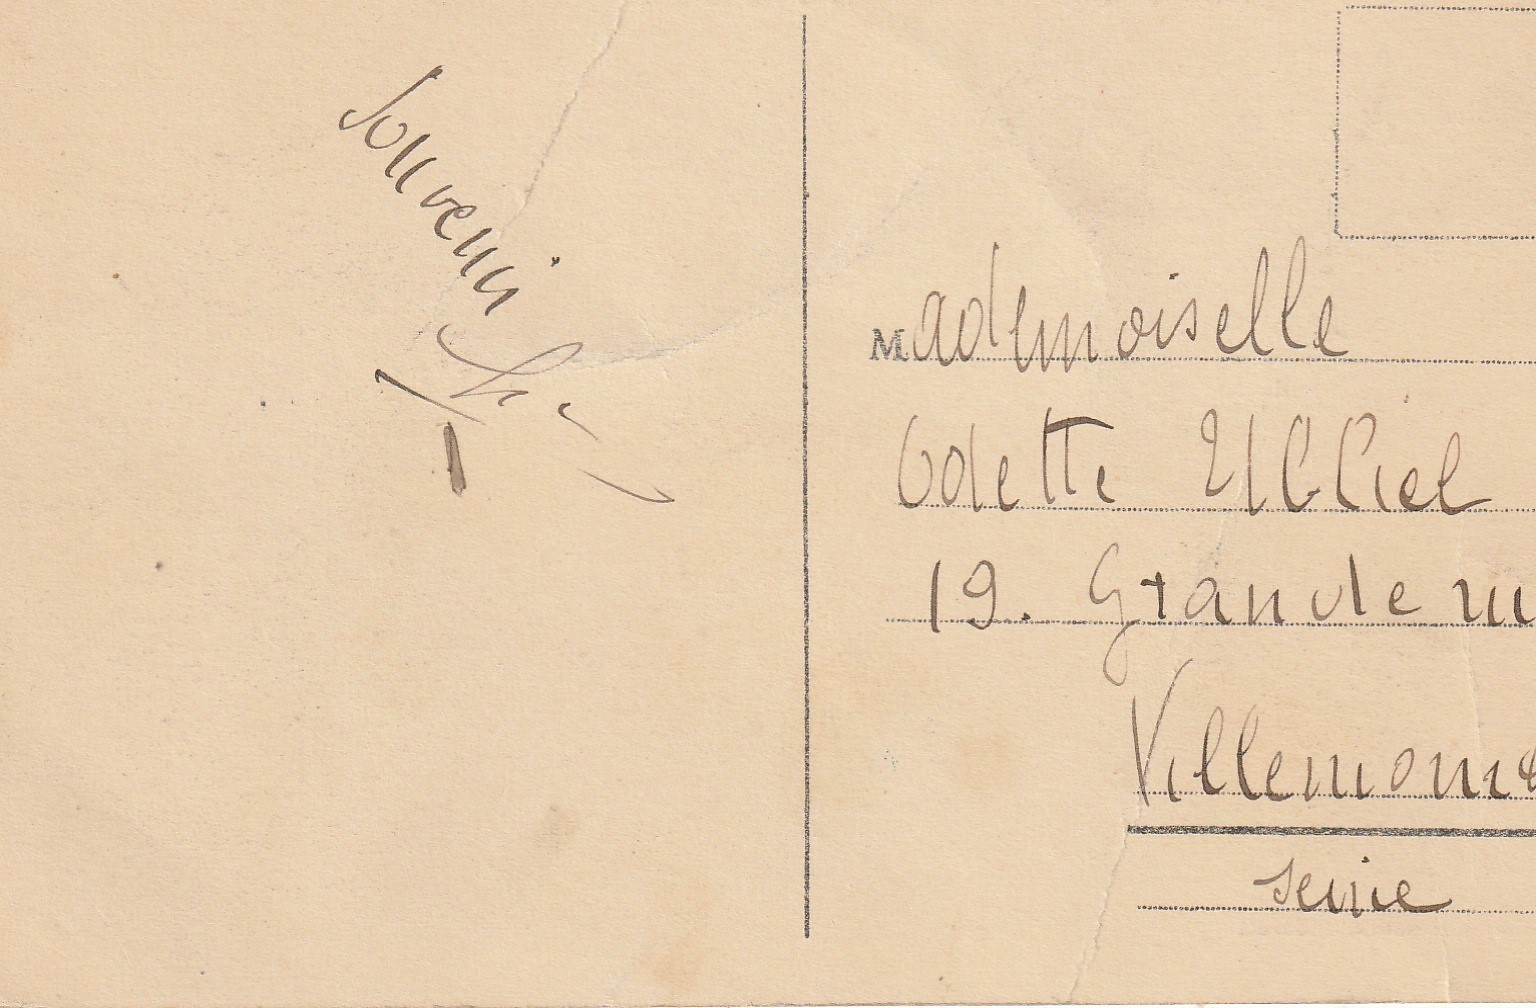 Souvenir
Mademoiselle
Odette Ulliel
19. Grande ru
Villemom
Seine